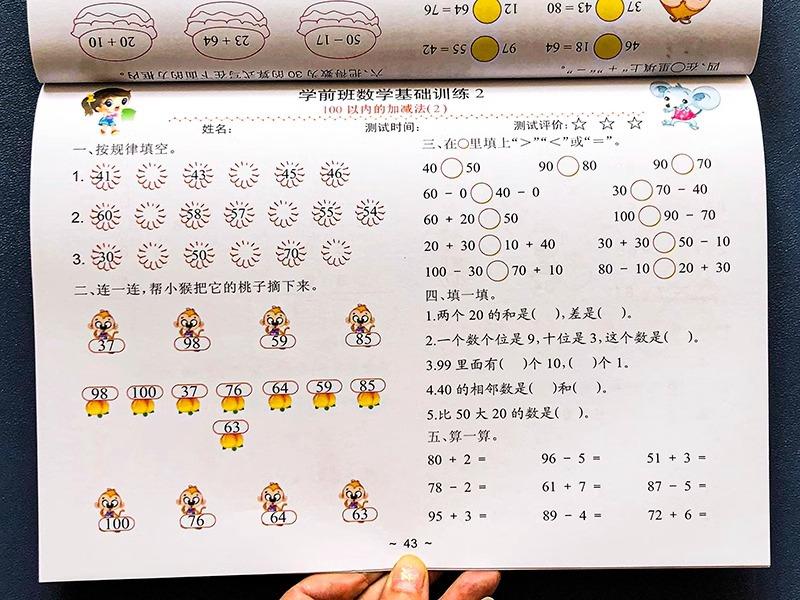 20 + 10
23 + 64
50 - 17
12 ○ 64 = 76
37 ○ 43 = 80
97 ○ 55 = 42
46 ○ 18 = 64
六、把得数为 30 的算式写在下面的方框内。
四、在○里填上“+”“-”。
学前班数学基础训练 2
100 以内的加减法(2)
姓名: 测试时间: 测试评价:☆ ☆ ☆
一、按规律填空。
1. 41 43 45 46
2. 60 58 57 55 54
3. 30 50 70
二、连一连,帮小猴把它的桃子摘下来。
37 98 59 85
98 100 37 76 64 59 85
63
100 76 64 63
三、在○里填上“>”“<”或“=”。
40 ○ 50 90 ○ 80 90 ○ 70
60 - 0 ○ 40 - 0 30 ○ 70 - 40
60 + 20 ○ 50 100 ○ 90 - 70
20 + 30 ○ 10 + 40 30 + 30 ○ 50 - 10
100 - 30 ○ 70 + 10 80 - 10 ○ 20 + 30
四、填一填。
1.两个 20 的和是( ),差是( )。
2.一个数个位是 9,十位是 3,这个数是( )。
3.99 里面有( )个 10,( )个 1。
4.40 的相邻数是( )和( )。
5.比 50 大 20 的数是( )。
五、算一算。
80 + 2 = 96 - 5 = 51 + 3 =
78 - 2 = 61 + 7 = 87 - 5 =
95 + 3 = 89 - 4 = 72 + 6 =
~ 43 ~